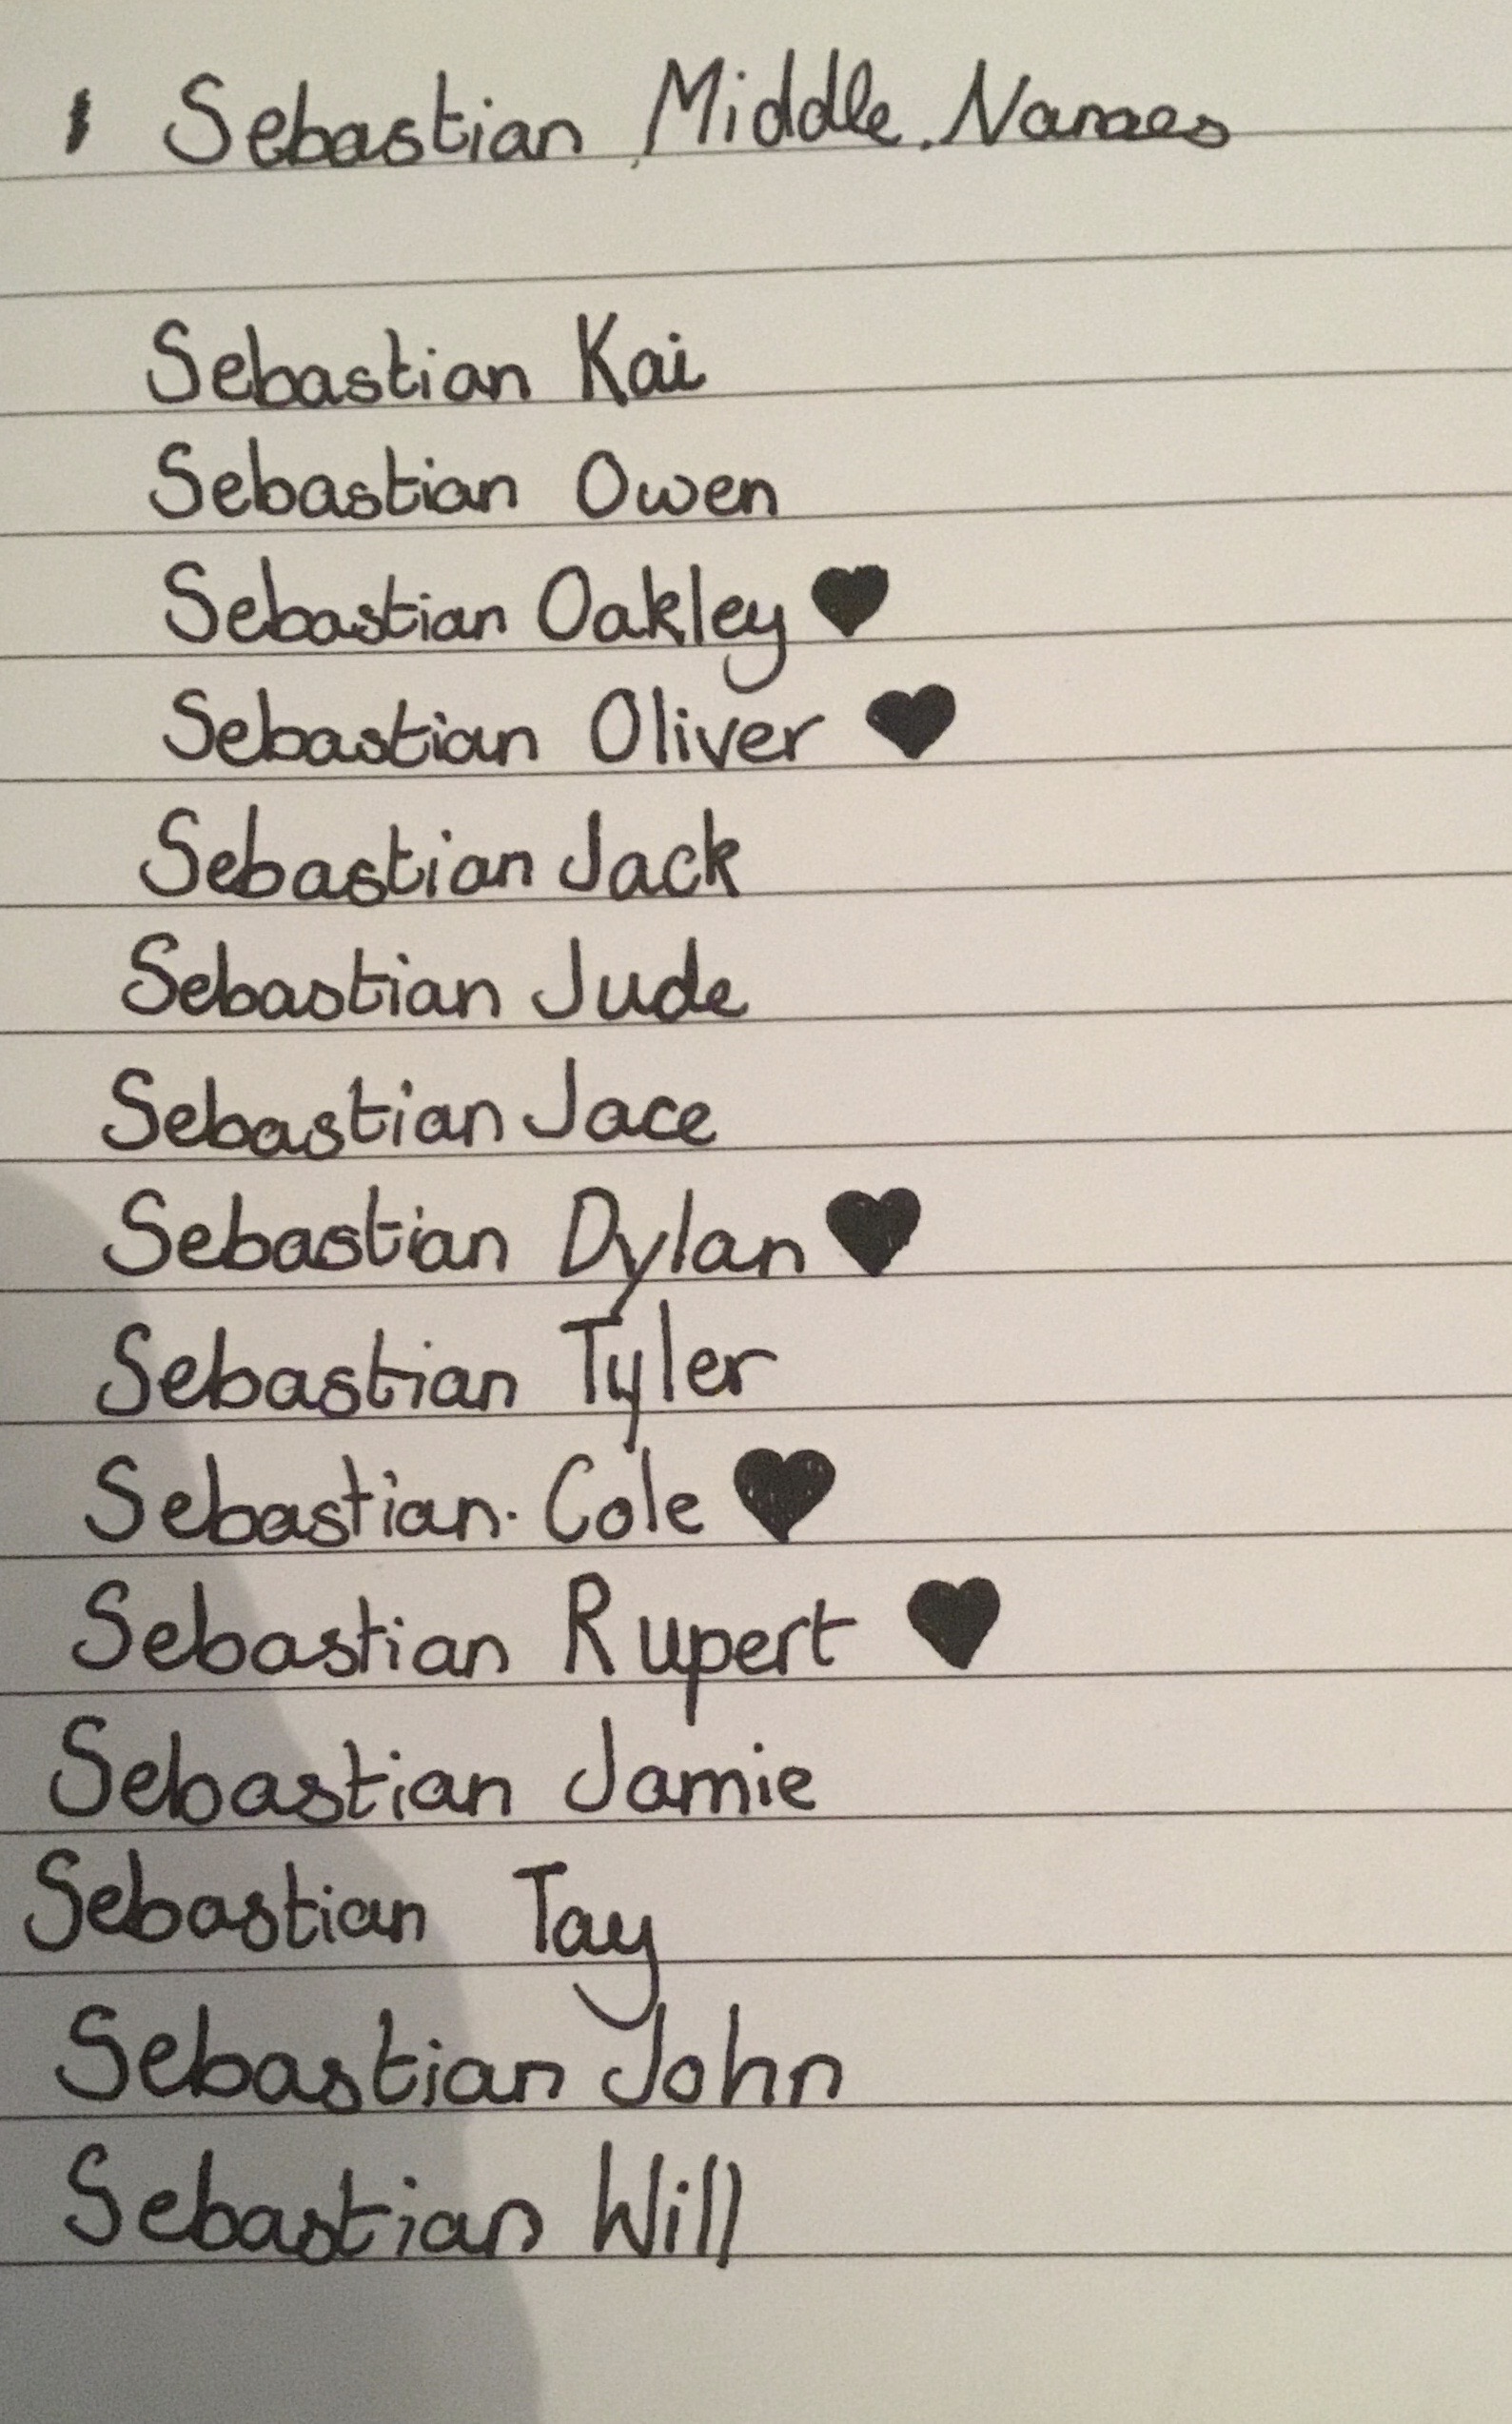 Sebastian Middle Names
Sebastian Kai
Sebastian Owen
Sebastian Oakley ♥
Sebastian Oliver ♥
Sebastian Jack
Sebastian Jude
Sebastian Jace
Sebastian Dylan ♥
Sebastian Tyler
Sebastian Cole ♥
Sebastian Rupert ♥
Sebastian Jamie
Sebastian Tay
Sebastian John
Sebastian Will